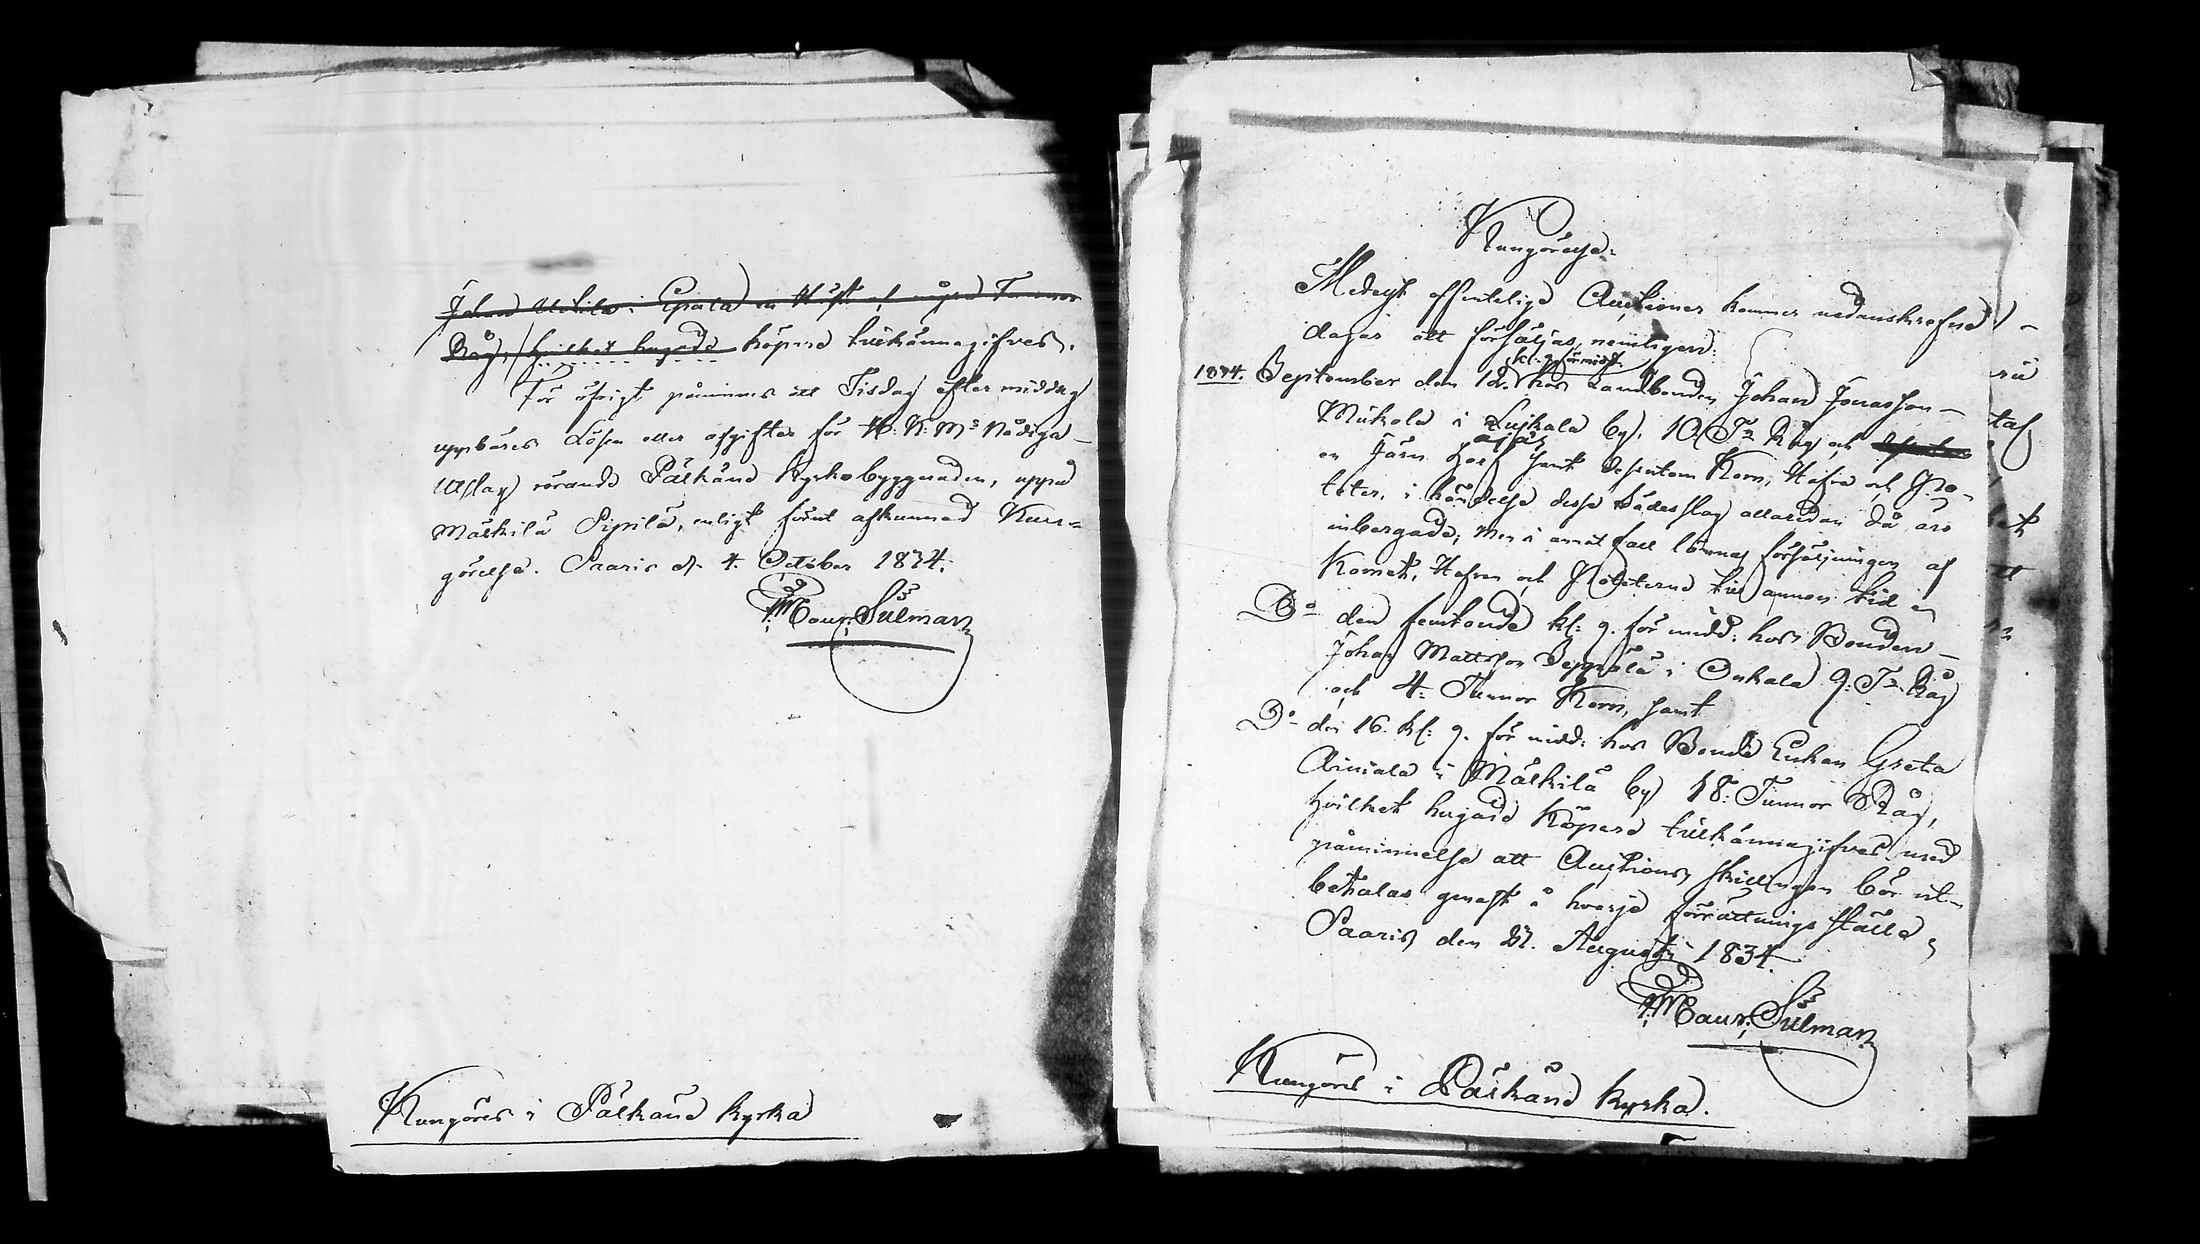 Johan Uotila i Epaala en Häst och några Tunnor
Råg, hvilket hugade Köpare tillkännagifves.
För öfrigt påminnes att Tisdag efter middag
uppbäres Lösen eller afgifter för H: K: M:s Nådiga
Utslag rörande Pälkäne Kyrkobyggnaden, uppå
Mälkilä Sipilä, enligt förut afkunnad Kun-
görelse. Saaris d. 4. October 1834.
Maur: Silman
Kungöres i Pälkäne kyrka
Kungörelse.
Medelst offentelige Auctioner kommer nedanskrefne
dagar att försäljas, nemligen:
kl. 9. förmidd:
1834. September den 12. hos Landbonden Johan Jonasson
Mikola i Luikala by, 10 T:r Råg och
en Järn Harf samt dessutom Korn, Hafra och Po-
teter, i händelse desse Sädesslag allaredan då äro
inbergade, men i annat fall lämnas försäljningen af
Kornet, Hafran och Poteterne till annan tid
D:o den femtonde kl: 9. för midd: hos Bonden
Johan Mattsson Seppälä i Onkala 9. T:r Råg
och 4. Tunnor Korn, samt
D:o den 16. kl: 9. för midd: hos Bonde Enkan Greta
Ainiala i Mälkilä by 18: Tunnor Råg,
hvilket hugade Köpare tillkännagifves med
påminnelse att Auctions skillingen bör ut-
betalas genast å hvarje förrättnings ställe
Saaris den 21. Augusti 1834.
Maur: Silman
Kungöres i Pälkäne kyrka.